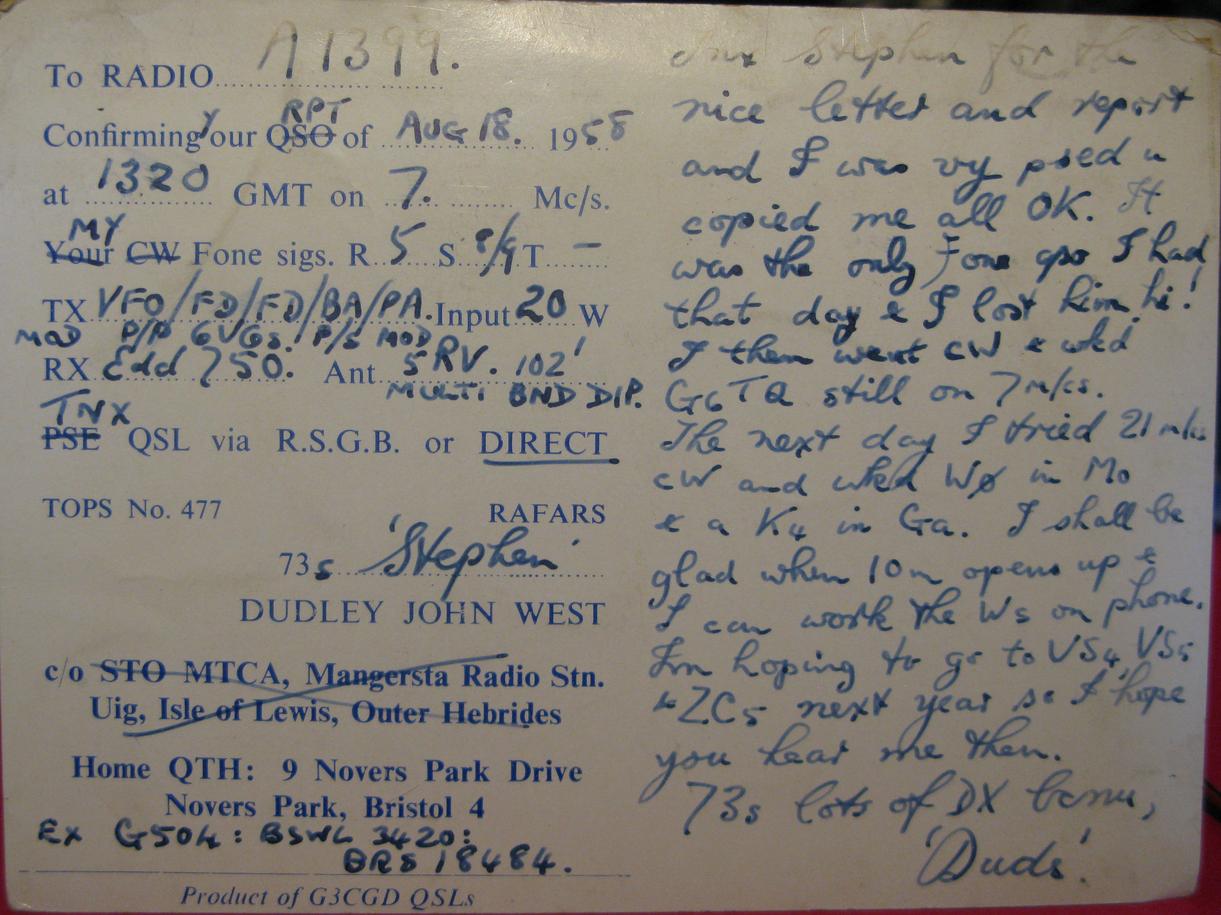 To RADIO A1399.
Confirming Your QSO RPT of AUG 18. 1958
at 1320 GMT on 7. Mc/s.
Your MY CW Fone sigs. R 5 S 8/9 T –
TX VFO/FD/FD/BA/PA. Input 20 W
MOD P/P 6V6s. P/S MOD
RX Edd 750. Ant 5RV. 102'
MULTI BND DIP.
TNX
PSE QSL via R.S.G.B. or DIRECT
TOPS No. 477 RAFARS
73s 'Stephen'
DUDLEY JOHN WEST
c/o STO MTCA, Mangersta Radio Stn.
Uig, Isle of Lewis, Outer Hebrides
Home QTH: 9 Novers Park Drive
Novers Park, Bristol 4
Ex G5OH: BSWL 3420:
BRS 18484.
Product of G3CGD QSLs
Tnx Stephen for the
nice letter and report
and I was vy psed u
copied me all OK. It
was the only Fone qso I had
that day & I lost him, hi!
I then went CW & wkd
G6TQ still on 7 m/cs.
The next day I tried 21 m/cs
CW and wkd WØ in Mo
& a K4 in Ga. I shall be
glad when 10m opens up &
I can work the Ws on phone.
Im hoping to go to VS4, VS5
& ZC5 next year so I hope
you hear me then.
73s lots of DX
'Duds'.